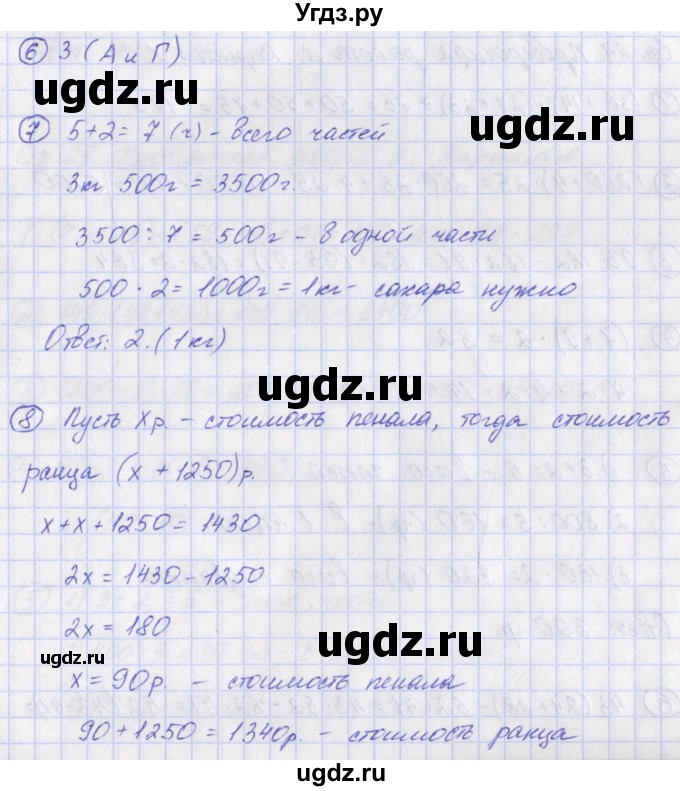 Угдз.ру
⑥ 3 (А и Г)
ugdz.ru ugdz.ru
⑦ 5+2= 7 (ч) - всего частей
3кг 500г = 3500г.
3500 : 7 = 500г - в одной части
500 · 2 = 1000г = 1кг - сахара нужно
ugdz.ru
Ответ: 2. (1кг)
ugdz.ru
⑧ Пусть Хр. - стоимость пенала, тогда стоимость
ранца (х + 1250)р.
х + х + 1250 = 1430
ugdz.ru
2х = 1430 - 1250
2х = 180
ugdz.ru ugdz.ru
х = 90р. - стоимость пенала
90 + 1250 = 1340р. - стоимость ранца
ugdz.ru